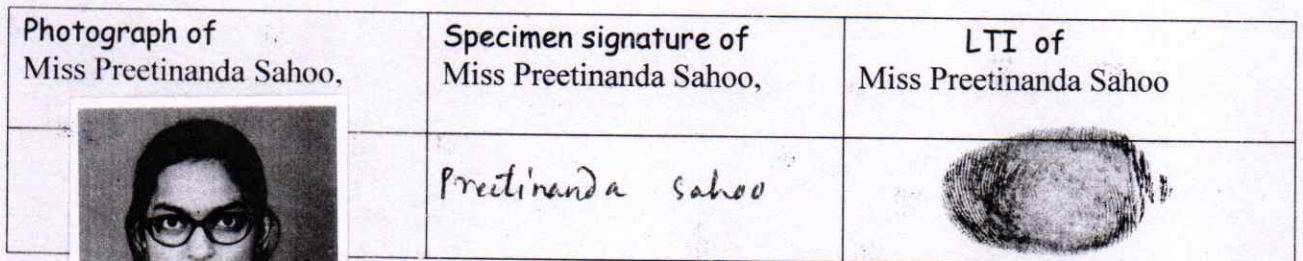 Photograph of
Miss Preetinanda Sahoo,
Specimen signature of
Miss Preetinanda Sahoo,
LTI of
Miss Preetinanda Sahoo
Preetinanda Sahoo